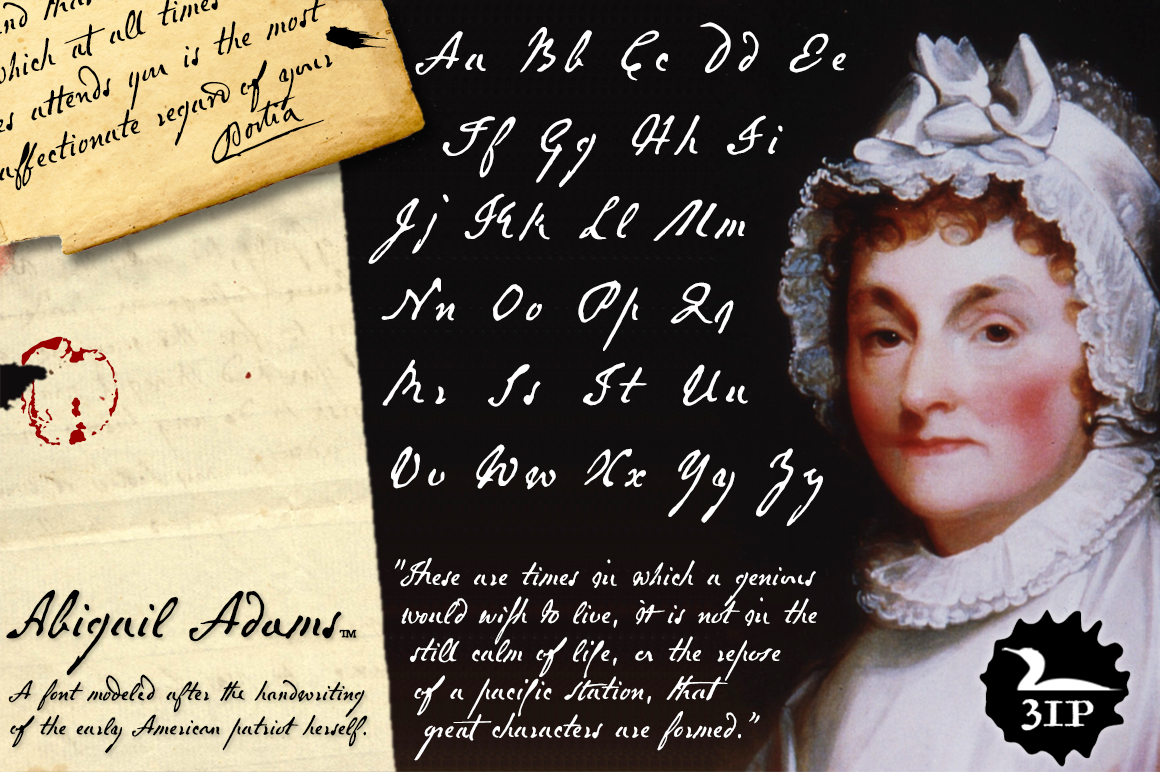 and than
which at all times
es attends you is the most
affectionate regard of your
Portia
Aa Bb Cc Dd Ee
Ff Gg Hh Ii
Jj Kk Ll Mm
Nn Oo Pp Qq
Rr Ss Tt Uu
Vv Ww Xx Yy Zz
"These are times in which a genious
would wish to live, it is not in the
still calm of life, or the repose
of a pacific station, that
great characters are formed."
Abigail Adams™
A font modeled after the handwriting
of the early American patriot herself.
3IP